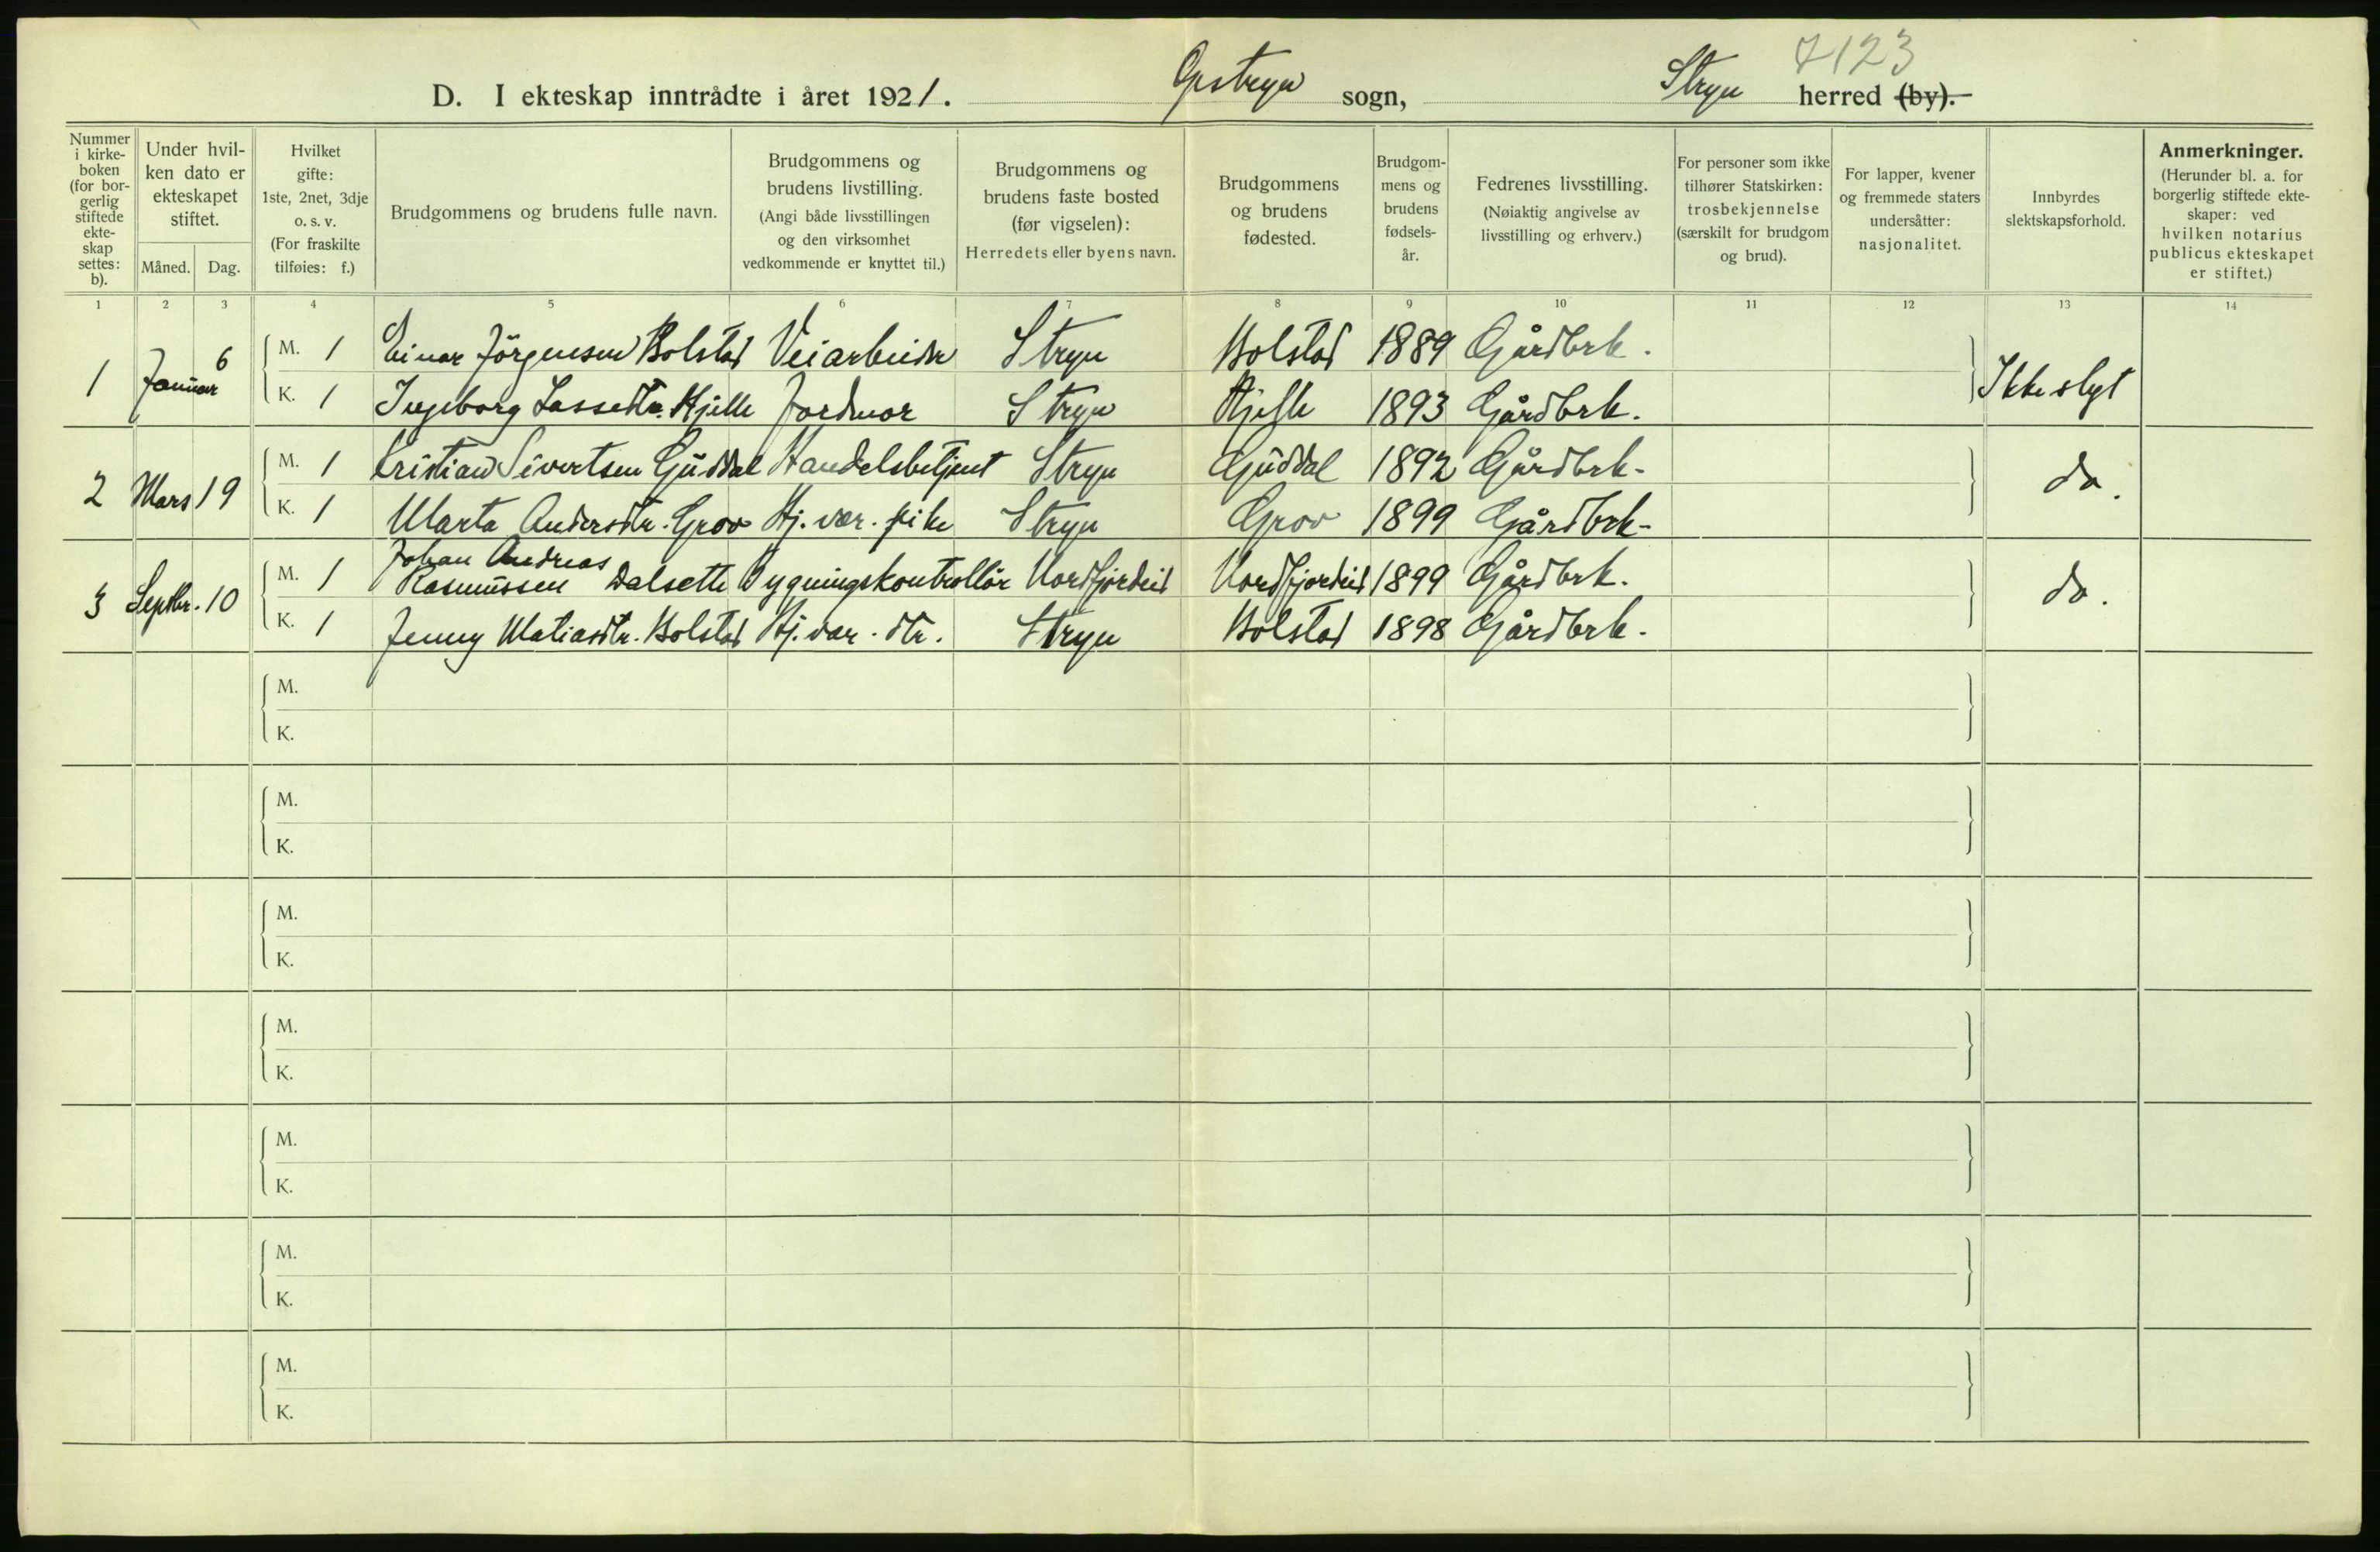 7123
D. I ekteskap inntrådte i året 1921. Opstryn sogn, Stryn herred (by).
Nummer i kirkeboken (for borgerlig stiftede ekteskap settes: b).
Under hvilken dato er ekteskapet stiftet.
Måned. Dag.
Hvilket gifte: 1ste, 2net, 3dje o. s. v. (For fraskilte tilføies: f.)
Brudgommens og brudens fulle navn.
Brudgommens og brudens livstilling. (Angi både livsstillingen og den virksomhet vedkommende er knyttet til.)
Brudgommens og brudens faste bosted (før vigselen): Herredets eller byens navn.
Brudgommens og brudens fødested.
Brudgommens og brudens fødselsår.
Fedrenes livsstilling. (Nøiaktig angivelse av livsstilling og erhverv.)
For personer som ikke tilhører Statskirken: trosbekjennelse (særskilt for brudgom og brud).
For lapper, kvener og fremmede staters undersåtter: nasjonalitet.
Innbyrdes slektskapsforhold.
Anmerkninger. (Herunder bl. a. for borgerlig stiftede ekteskaper: ved hvilken notarius publicus ekteskapet er stiftet.)
1 2 3 4 5 6 7 8 9 10 11 12 13 14
1 Januar 6 M. 1 Einar Jörgensen Bolstad Veiarbeider Stryn Bolstad 1889 Gårdbrk. Ikke slegt
K. 1 Ingeborg Lassedtr. Hjelle Jordmor Stryn Hjelle 1893 Gårdbrk.
2 Mars 19 M. 1 Kristian Sivertsen Guddal Handelsbetjent Stryn Guddal 1892 Gårdbrk- do.
K. 1 Marta Andersdtr. Grov Hj. vær. pike Stryn Grov 1899 Gårdbrk-
3 Septbr. 10 M. 1 Johan Andreas
Rasmussen Dalsette Bygningskontrollör Nordfjordeid Nordfjordeid 1899 Gårdbrk. do.
K. 1 Jenny Matiasdtr. Bolstad Hj. vær. dtr. Stryn Bolstad 1898 Gårdbrk.
M.
K.
M.
K.
M.
K.
M.
K.
M.
K.
M.
K.
M.
K.